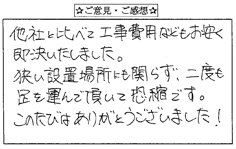 ☆ご意見・ご感想☆
他社と比べて工事費用などもお安く
即決いたしました。
狭い設置場所にも関らず、二度も
足を運んで頂いて恐縮です。
このたびはありがとうございました!